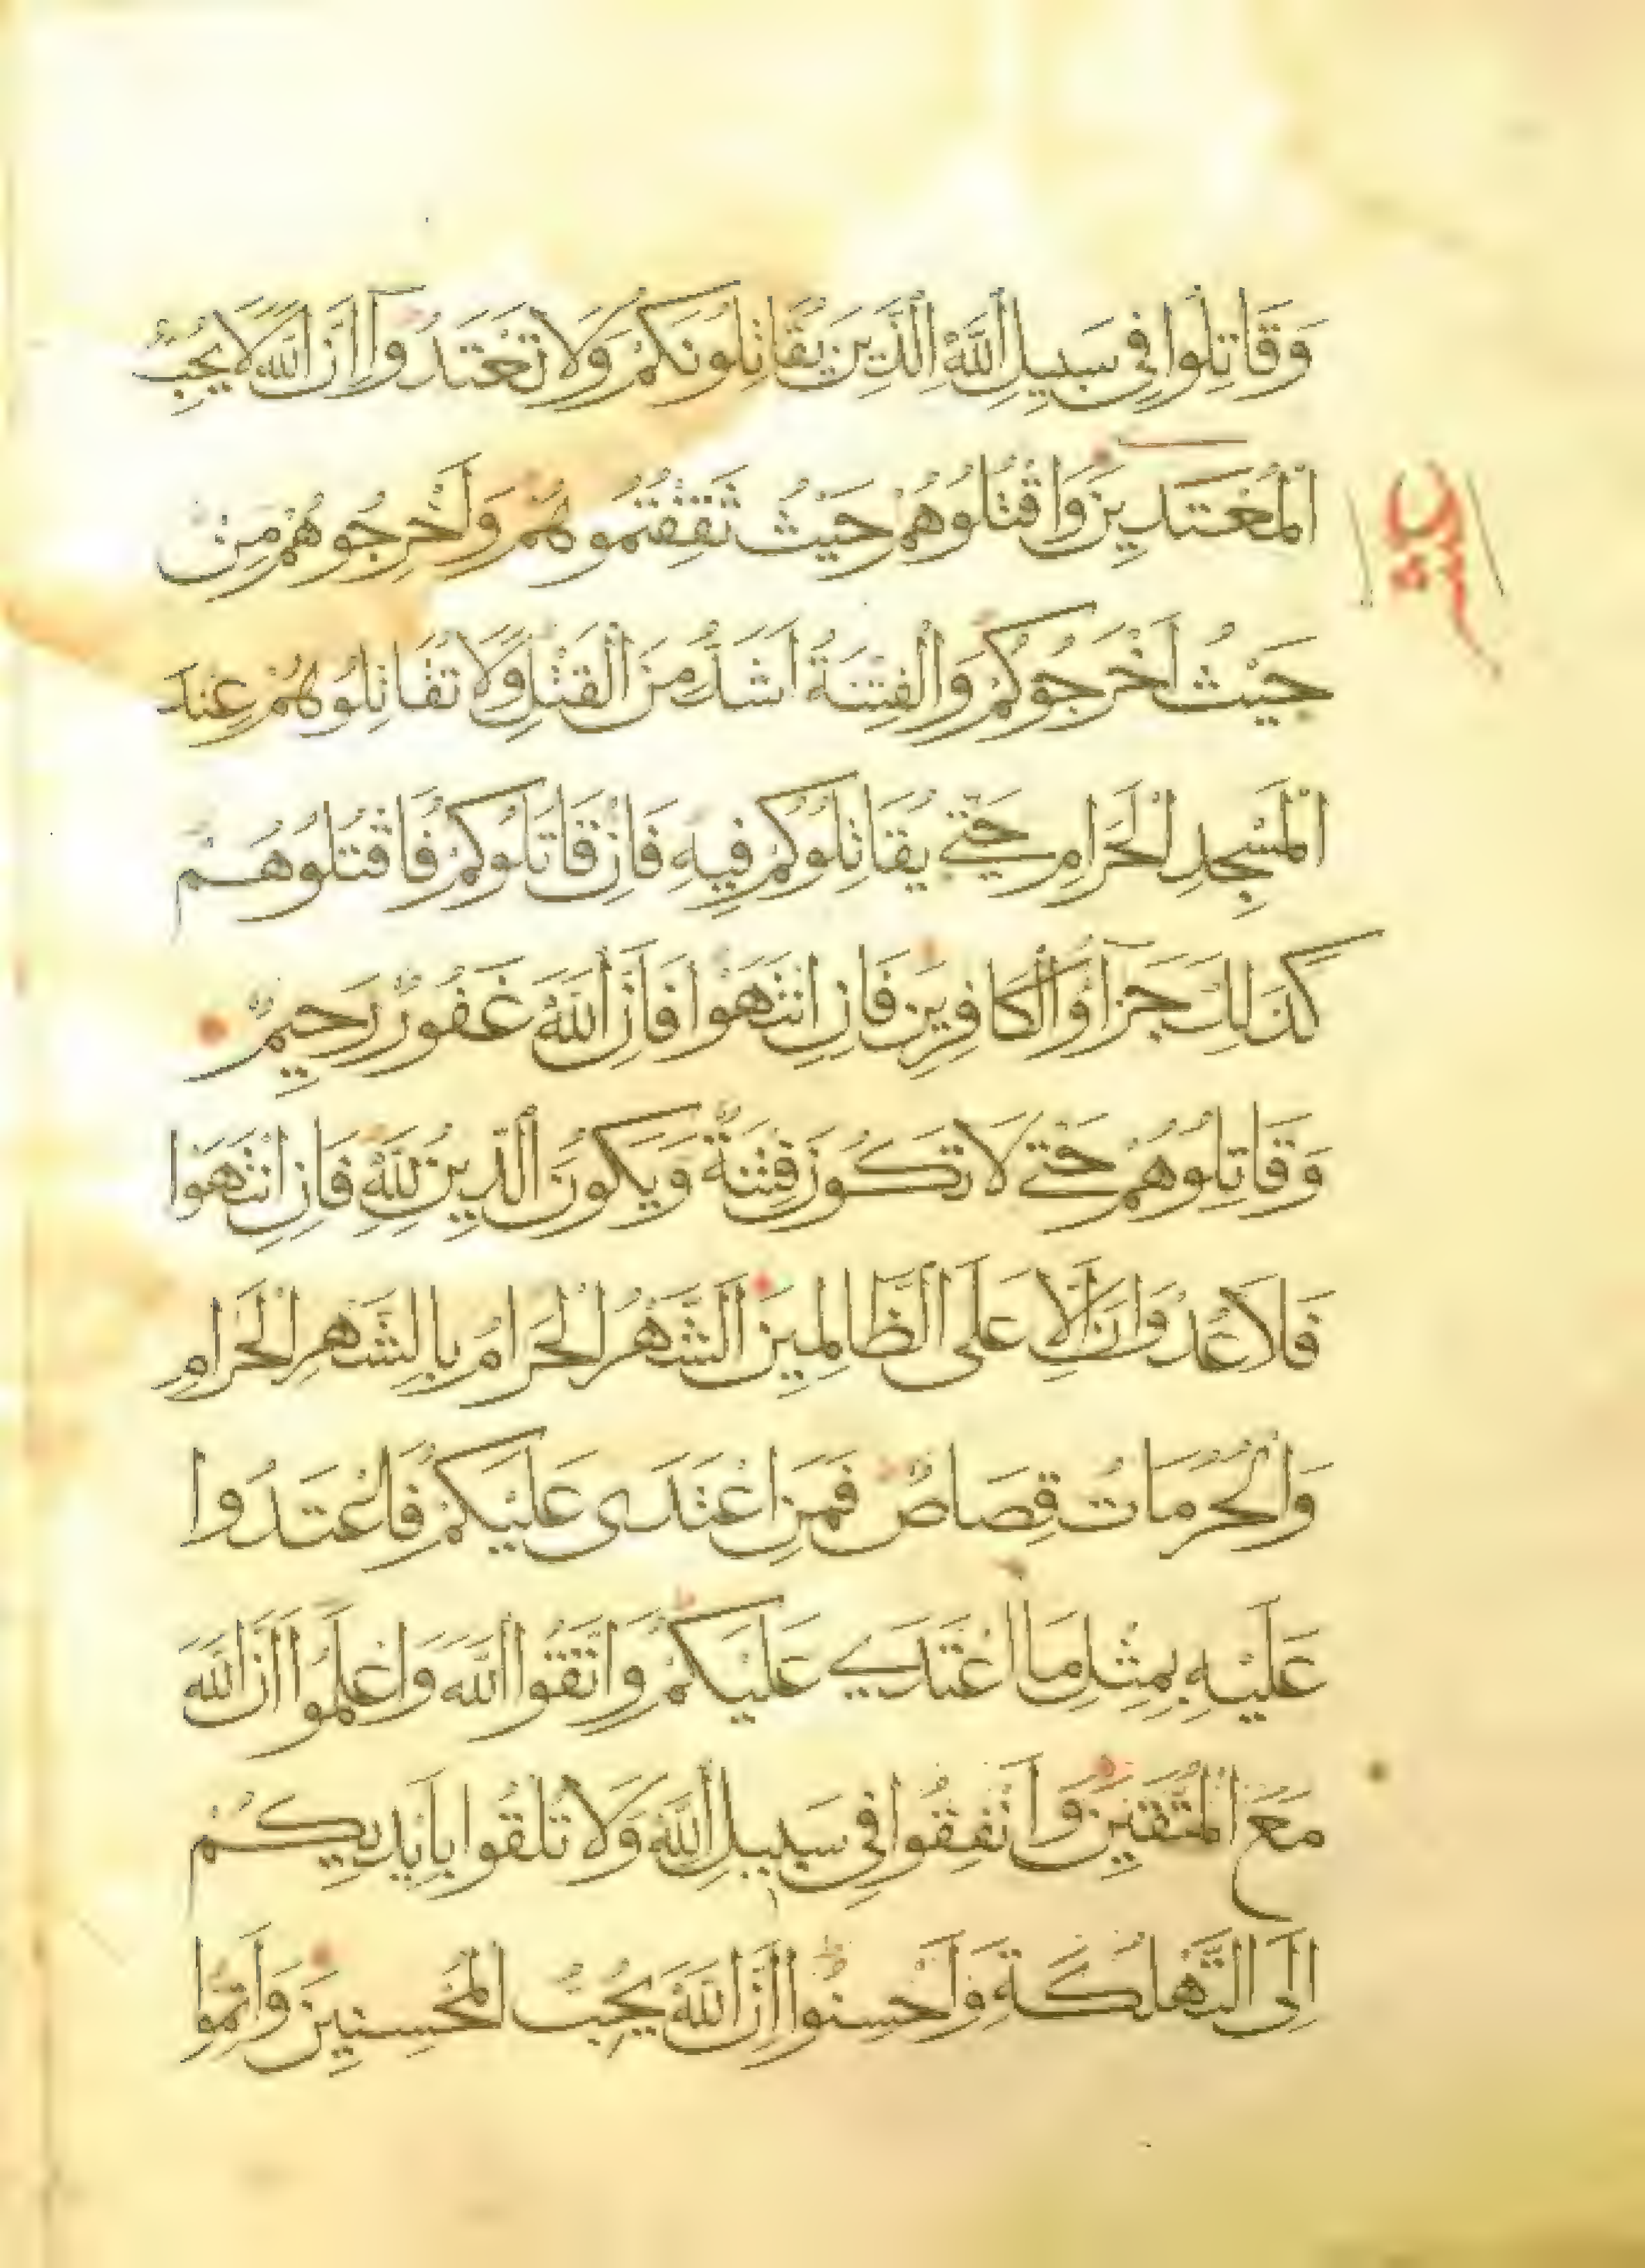 وَقَاتِلُوا فِي سَبِيلِ اللَّهِ الَّذِينَ يُقَاتِلُونَكُمْ وَلَا تَعْتَدُوا إِنَّ اللَّهَ لَا يُحِبُّ
الْمُعْتَدِينَ وَاقْتُلُوهُمْ حَيْثُ ثَقِفْتُمُوهُمْ وَأَخْرِجُوهُمْ مِنْ
حَيْثُ أَخْرَجُوكُمْ وَالْفِتْنَةُ أَشَدُّ مِنَ الْقَتْلِ وَلَا تُقَاتِلُوهُمْ عِنْدَ
الْمَسْجِدِ الْحَرَامِ حَتَّى يُقَاتِلُوكُمْ فِيهِ فَإِنْ قَاتَلُوكُمْ فَاقْتُلُوهُمْ
كَذَلِكَ جَزَآؤُا الْكَافِرِينَ فَإِنِ انْتَهَوْا فَإِنَّ اللَّهَ غَفُورٌ رَحِيمٌ
وَقَاتِلُوهُمْ حَتَّى لَا تَكُونَ فِتْنَةٌ وَيَكُونَ الدِّينُ لِلَّهِ فَإِنِ انْتَهَوْا
فَلَا عُدْوَانَ إِلَّا عَلَى الظَّالِمِينَ الشَّهْرُ الْحَرَامُ بِالشَّهْرِ الْحَرَامِ
وَالْحُرُمَاتُ قِصَاصٌ فَمَنِ اعْتَدَى عَلَيْكُمْ فَاعْتَدُوا
عَلَيْهِ بِمِثْلِ مَا اعْتَدَى عَلَيْكُمْ وَاتَّقُوا اللَّهَ وَاعْلَمُوا أَنَّ اللَّهَ
مَعَ الْمُتَّقِينَ وَأَنْفِقُوا فِي سَبِيلِ اللَّهِ وَلَا تُلْقُوا بِأَيْدِيكُمْ
إِلَى التَّهْلُكَةِ وَأَحْسِنُوا إِنَّ اللَّهَ يُحِبُّ الْمُحْسِنِينَ وَأَتِمُّوا